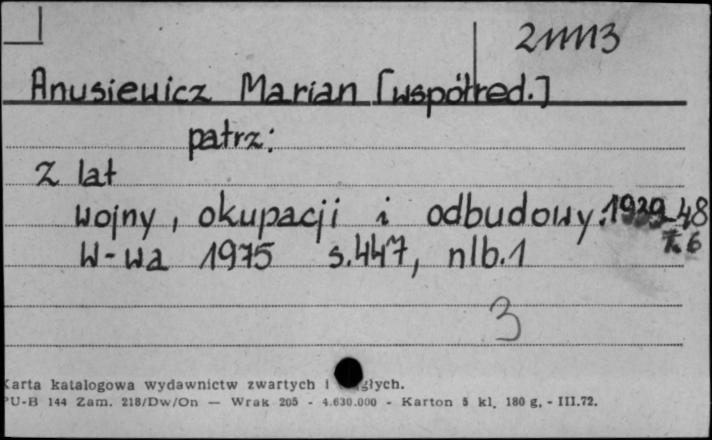 211113
Anusiewicz Marian [współred.]
patrz:
Z lat
wojny, okupacji i odbudowy. 1939-48
T. 6
W-wa 1975 s.447, nlb.1
3
Karta katalogowa wydawnictw zwartych i
PU-B 144 Zam. 218/Dw/On — Wrak 205 - 4.630.000 - Karton 5 kl. 180 g. - III.72.